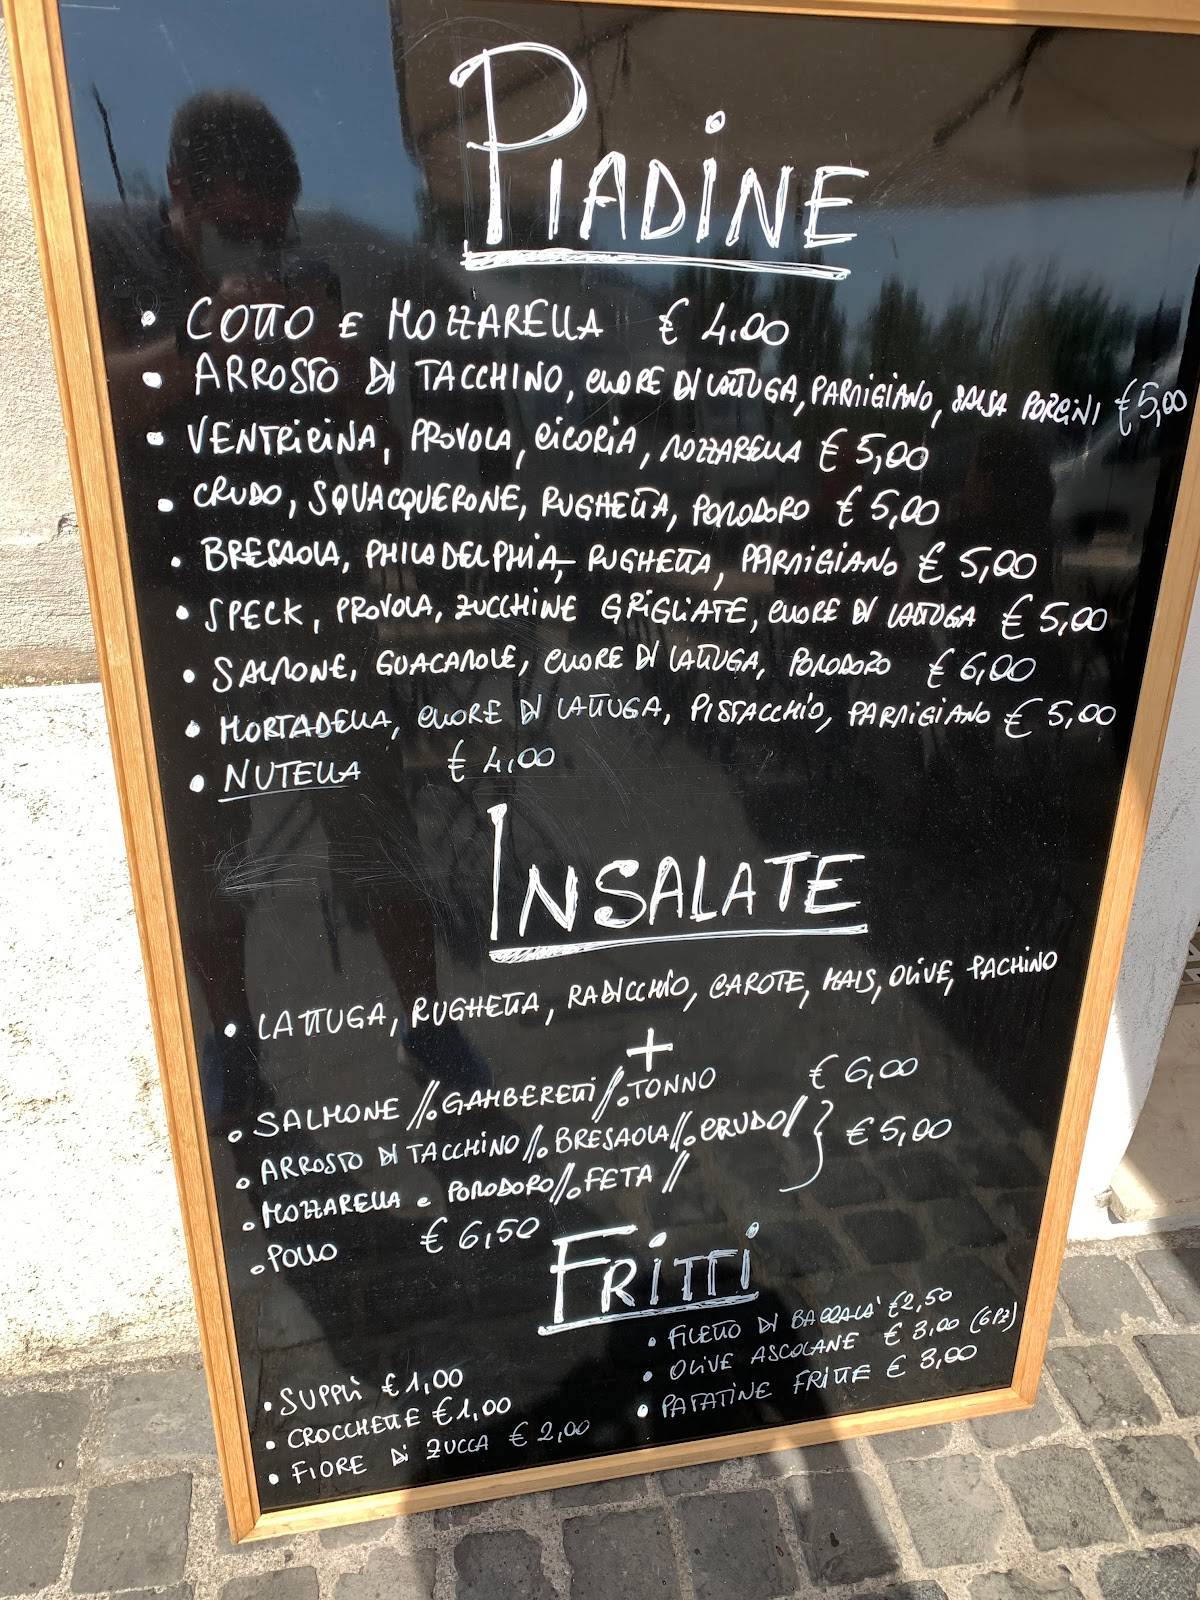 PIADINE
• COTTO E MOZZARELLA € 4,00
• ARROSTO DI TACCHINO, CUORE DI LATTUGA, PARMIGIANO, SALSA PORCINI € 5,00
• VENTRICINA, PROVOLA, CICORIA, MOZZARELLA € 5,00
• CRUDO, SQUACQUERONE, RUGHETTA, POMODORO € 5,00
• BRESAOLA, PHILADELPHIA, RUGHETTA, PARMIGIANO € 5,00
• SPECK, PROVOLA, ZUCCHINE GRIGLIATE, CUORE DI LATTUGA € 5,00
• SALMONE, GUACAMOLE, CUORE DI LATTUGA, POMODORO € 6,00
• MORTADELLA, CUORE DI LATTUGA, PISTACCHIO, PARMIGIANO € 5,00
• NUTELLA € 4,00
INSALATE
• LATTUGA, RUGHETTA, RADICCHIO, CAROTE, MAIS, OLIVE, PACHINO
+
• SALMONE //• GAMBERETTI //• TONNO € 6,00
• ARROSTO DI TACCHINO //• BRESAOLA //• CRUDO // } € 5,00
• MOZZARELLA e POMODORO //• FETA //
• POLLO € 6,50
FRITTI
• SUPPLÌ € 1,00
• CROCCHETTE € 1,00
• FIORE DI ZUCCA € 2,00
• FILETTO DI BACCALA' € 2,50
• OLIVE ASCOLANE € 3,00 (6PZ)
• PATATINE FRITTE € 3,00